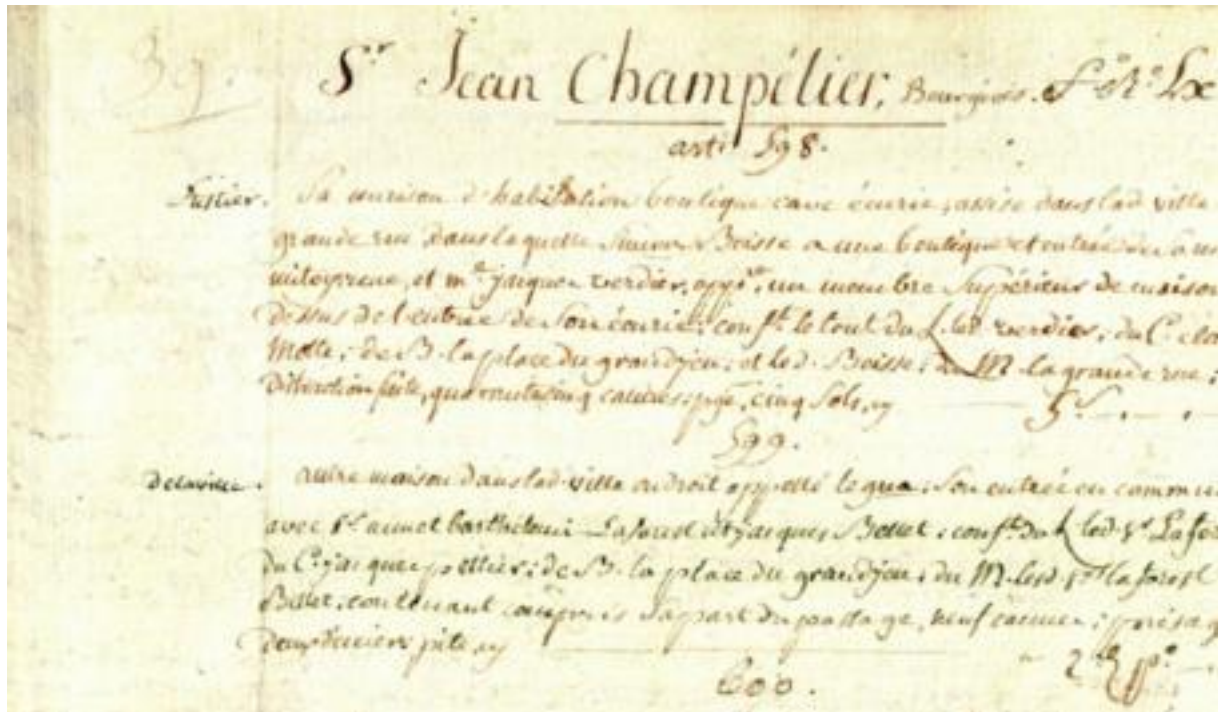 39.
Sr Jean Champélier, Bourgeois.
arti 598.
Sa maison d'habitation boutique cave écurie, assise dans lad ville
grande rue dans laquelle Boisse a une boutique et entrée
mitoyenne, et me jacques verdier, un membre supérieur de maison
dessus de l'entrée de son écurie; conft le tout du L. led verdier, du C.
Motte; de B. la place du grand jeu; et led. Boisse; du M. la grande rue;
quarante cinq cannes; cinq sols, ay 5s.
599.
delaville. autre maison dans lad ville endroit appellé legua; son entrée en commun
avec Sr annet barthelemi Laforest et jacques Bellet; conft. du L led Sr Lafo
du C. jacques; de B. la place du grand jeu; du M. lesd. Srs laforest
Bellet, contenant compris sa part du passage, neuf cannes;
deux deniers pite ay 2d pe
600.